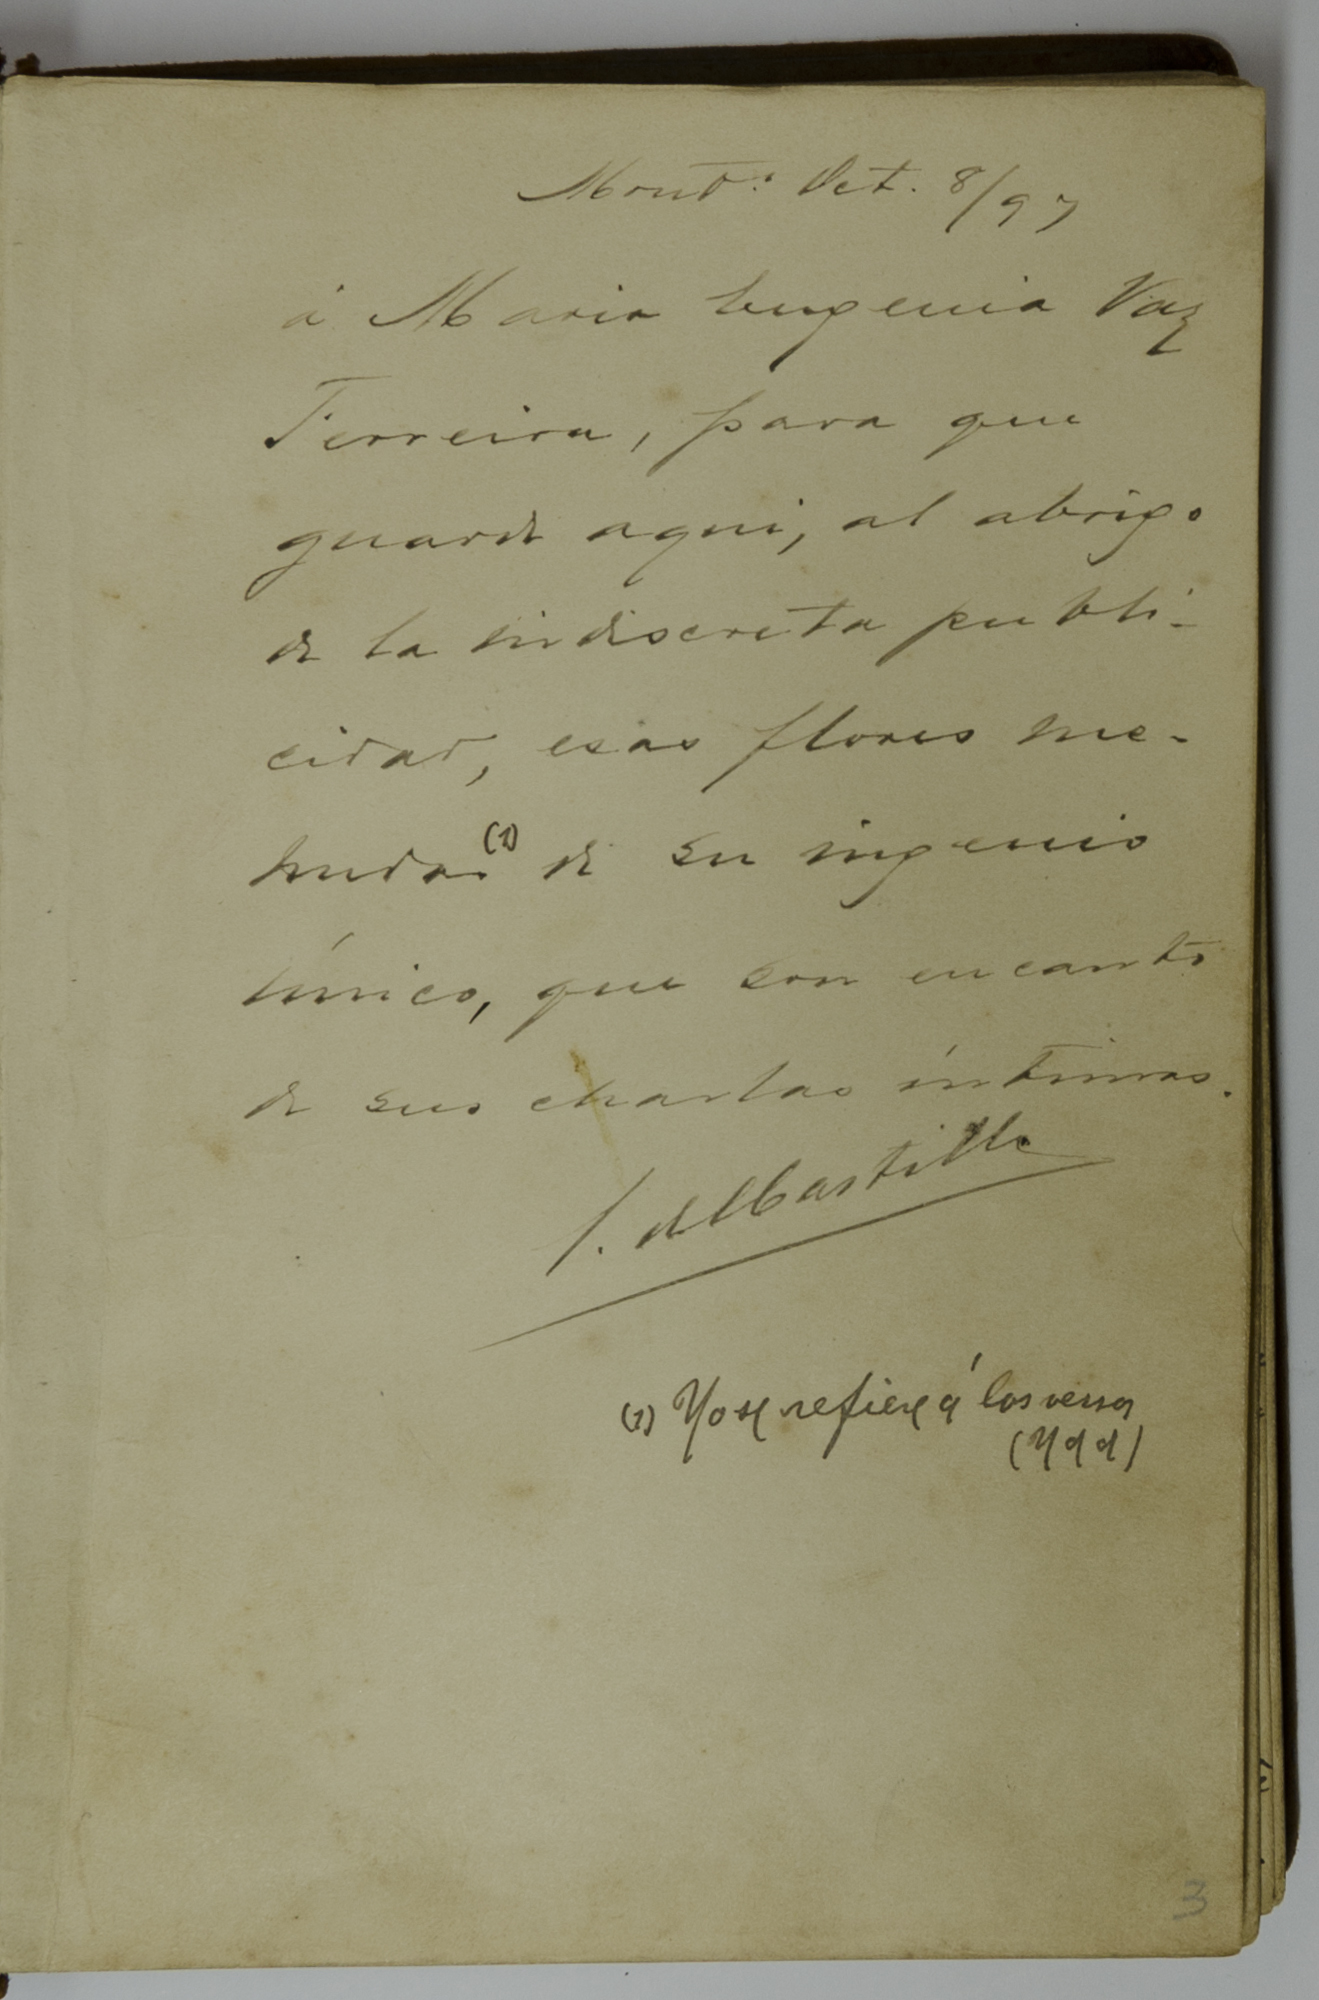 Montº Oct. 8/97
á Maria Eugenia Vaz
Ferreira, para que
guarde aqui, al abrigo
de la indiscreta publi-
cidad, esas flores me-
nudas (1) de su ingenio
único, que son encanto
de sus charlas íntimas.
S. de la Bastille
(1) No se refiere á los versos
(N d d)
3